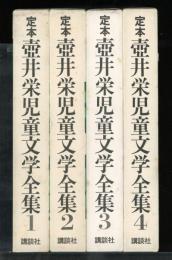 定本
壺井栄児童文学全集1
講談社
定本
壺井栄児童文学全集2
講談社
定本
壺井栄児童文学全集3
講談社
定本
壺井栄児童文学全集4
講談社